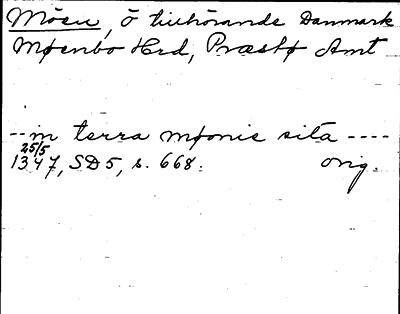 Möen, ö tillhörande Danmark
Møenbo Hrd, Præstø Amt
--in terra mønis sita ----
25/5
1347, SD5, s. 668. orig.